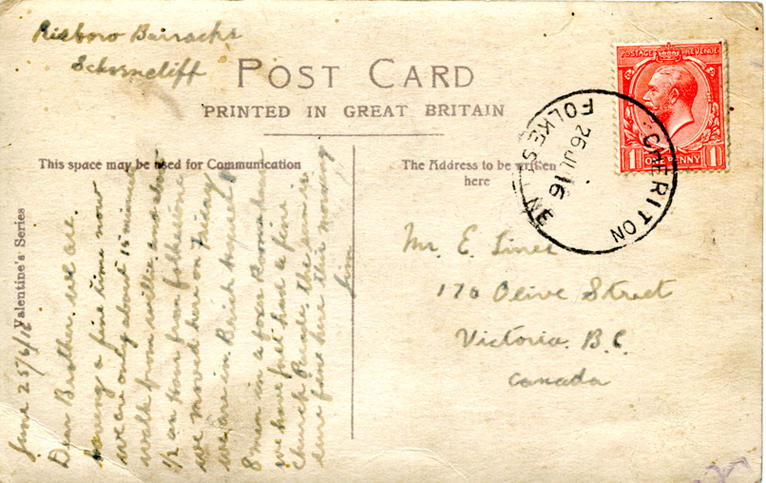 Risboro Barracks
Schorncliff
POST CARD
PRINTED IN GREAT BRITAIN
This space may be used for Communication
The Address to be written
here
Valentine's Series
POSTAGE REVENUE
1 ONE PENNY 1
CHERITON
26 JU 16
FOLKESTONE
June 25/6/16
Dear Brother we are
having a fine time now
we are only about 15 minutes
walk from willie and about
1/2 an hour from folkestone
we moved here on Friday
we are in Brick
8 men in a
we have just had a fine
Church Parade the sun is
fine here this morning
Jim
Mr. E. Lines
176 Olive Street
Victoria. B.C.
Canada